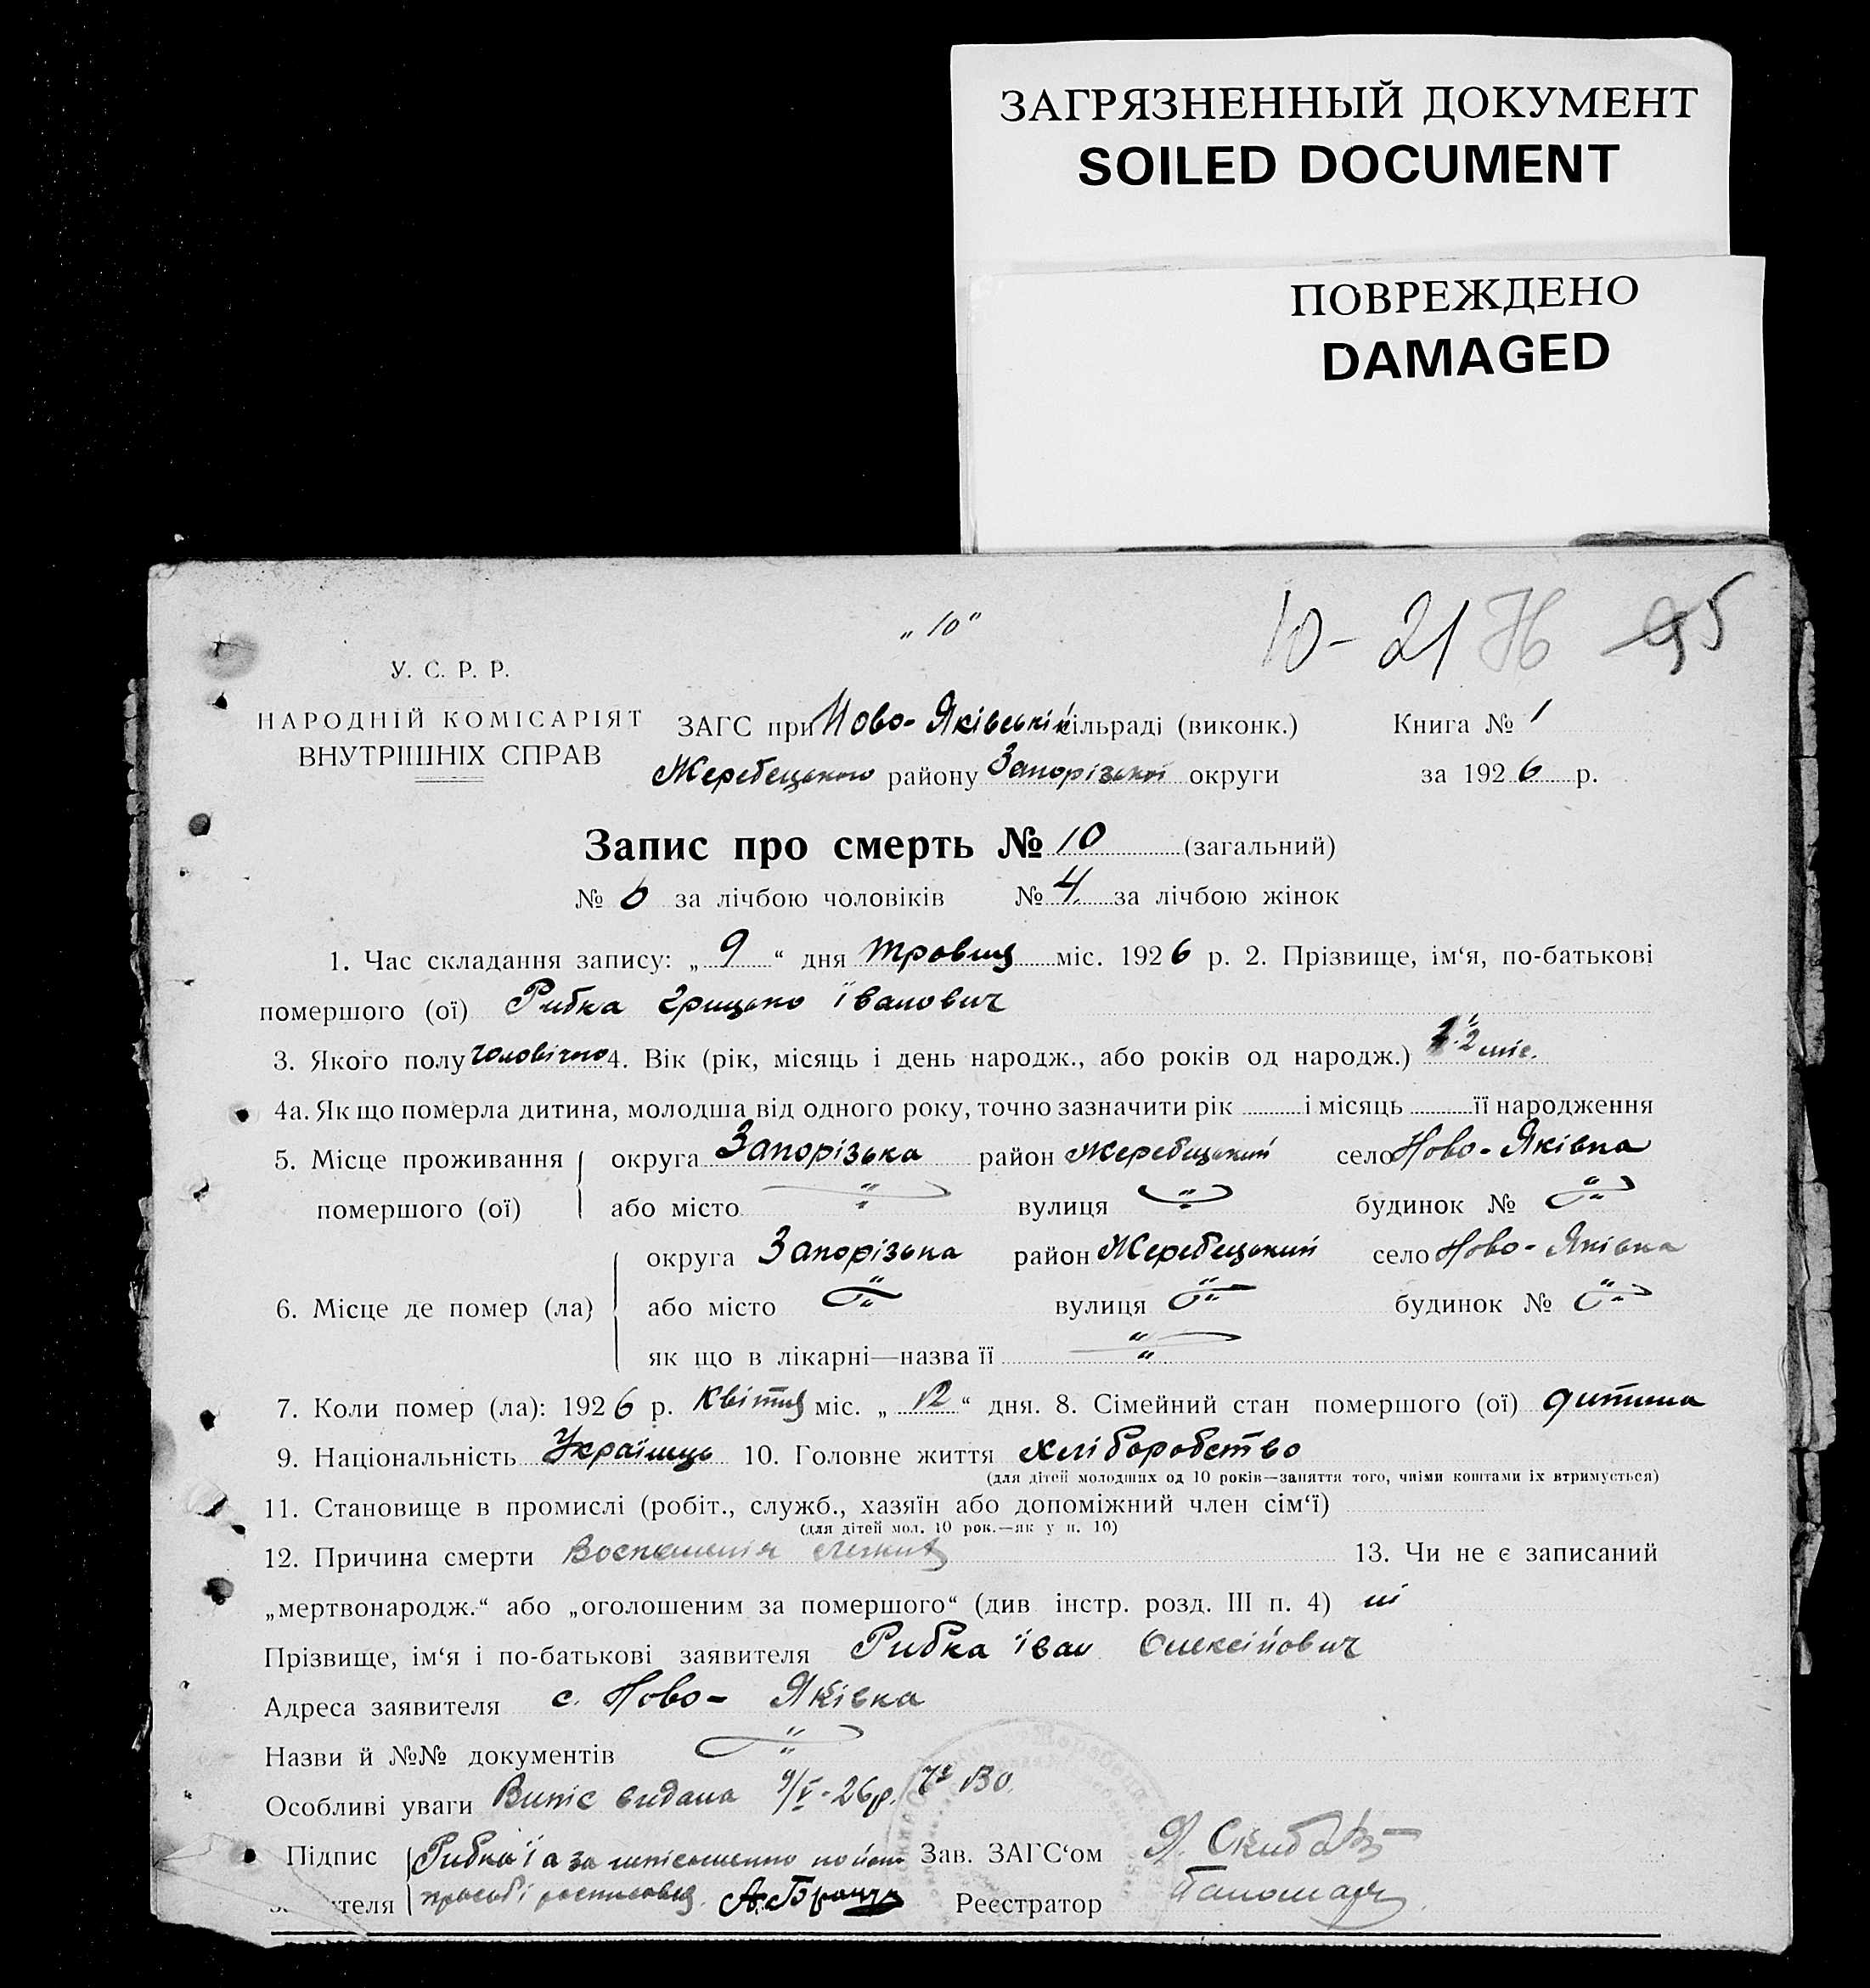 ЗАГРЯЗНЕННЫЙ ДОКУМЕНТ
SOILED DOCUMENT
ПОВРЕЖДЕНО
DAMAGED
„10“
10-21 76 95
У. С. Р. Р.
НАРОДНІЙ КОМІСАРІЯТ
ВНУТРІШНІХ СПРАВ
ЗАГС при Ново-Яківській сільраді (виконк.)
Жеребецького району Запорізької округи
Книга № 1
за 1926 р.
Запис про смерть № 10 (загальний)
№ 6 за лічбою чоловіків № 4 за лічбою жінок
1. Час складання запису: „9“ дня травня міс. 1926 р. 2. Прізвище, ім‘я, по-батькові
помершого (ої) Рибка Грицько Іванович
3. Якого полу чоловічого 4. Вік (рік, місяць і день народж., або років од народж.) 2 міс.
4а. Як що померла дитина, молодша від одного року, точно зазначити рік і місяць її народження
5. Місце проживання помершого (ої) округа Запорізька район Жеребецький село Ново-Яківка
або місто „ вулиця „ будинок № „
6. Місце де помер (ла) округа Запорізька район Жеребецький село Ново-Яківка
або місто „ вулиця „ будинок № „
як що в лікарні—назва її „
7. Коли помер (ла): 1926 р. Квітня міс. „12“ дня. 8. Сімейний стан помершого (ої) дитина
9. Національність Українець 10. Головне життя хліборобство
(для дітей молодших од 10 років—заняття того, чиїми коштами їх втримується)
11. Становище в промислі (робіт., служб., хазяїн або допоміжний член сім‘ї)
(для дітей мол. 10 рок.—як у п. 10)
12. Причина смерти Воспаленія легких 13. Чи не є записаний
„мертвонародж.“ або „оголошеним за помершого“ (див інстр. розд. III п. 4) ні
Прізвище, ім‘я і по-батькові заявителя Рибка Іван Олексійович
Адреса заявителя с. Ново-Яківка
Назви й №№ документів „
Особливі уваги Випіс видана 9/V-26р.
Підпис Рибка І а за неписьменно по його Зав. ЗАГС‘ом Скиба
теля просьбі росписався Реєстратор Паномар